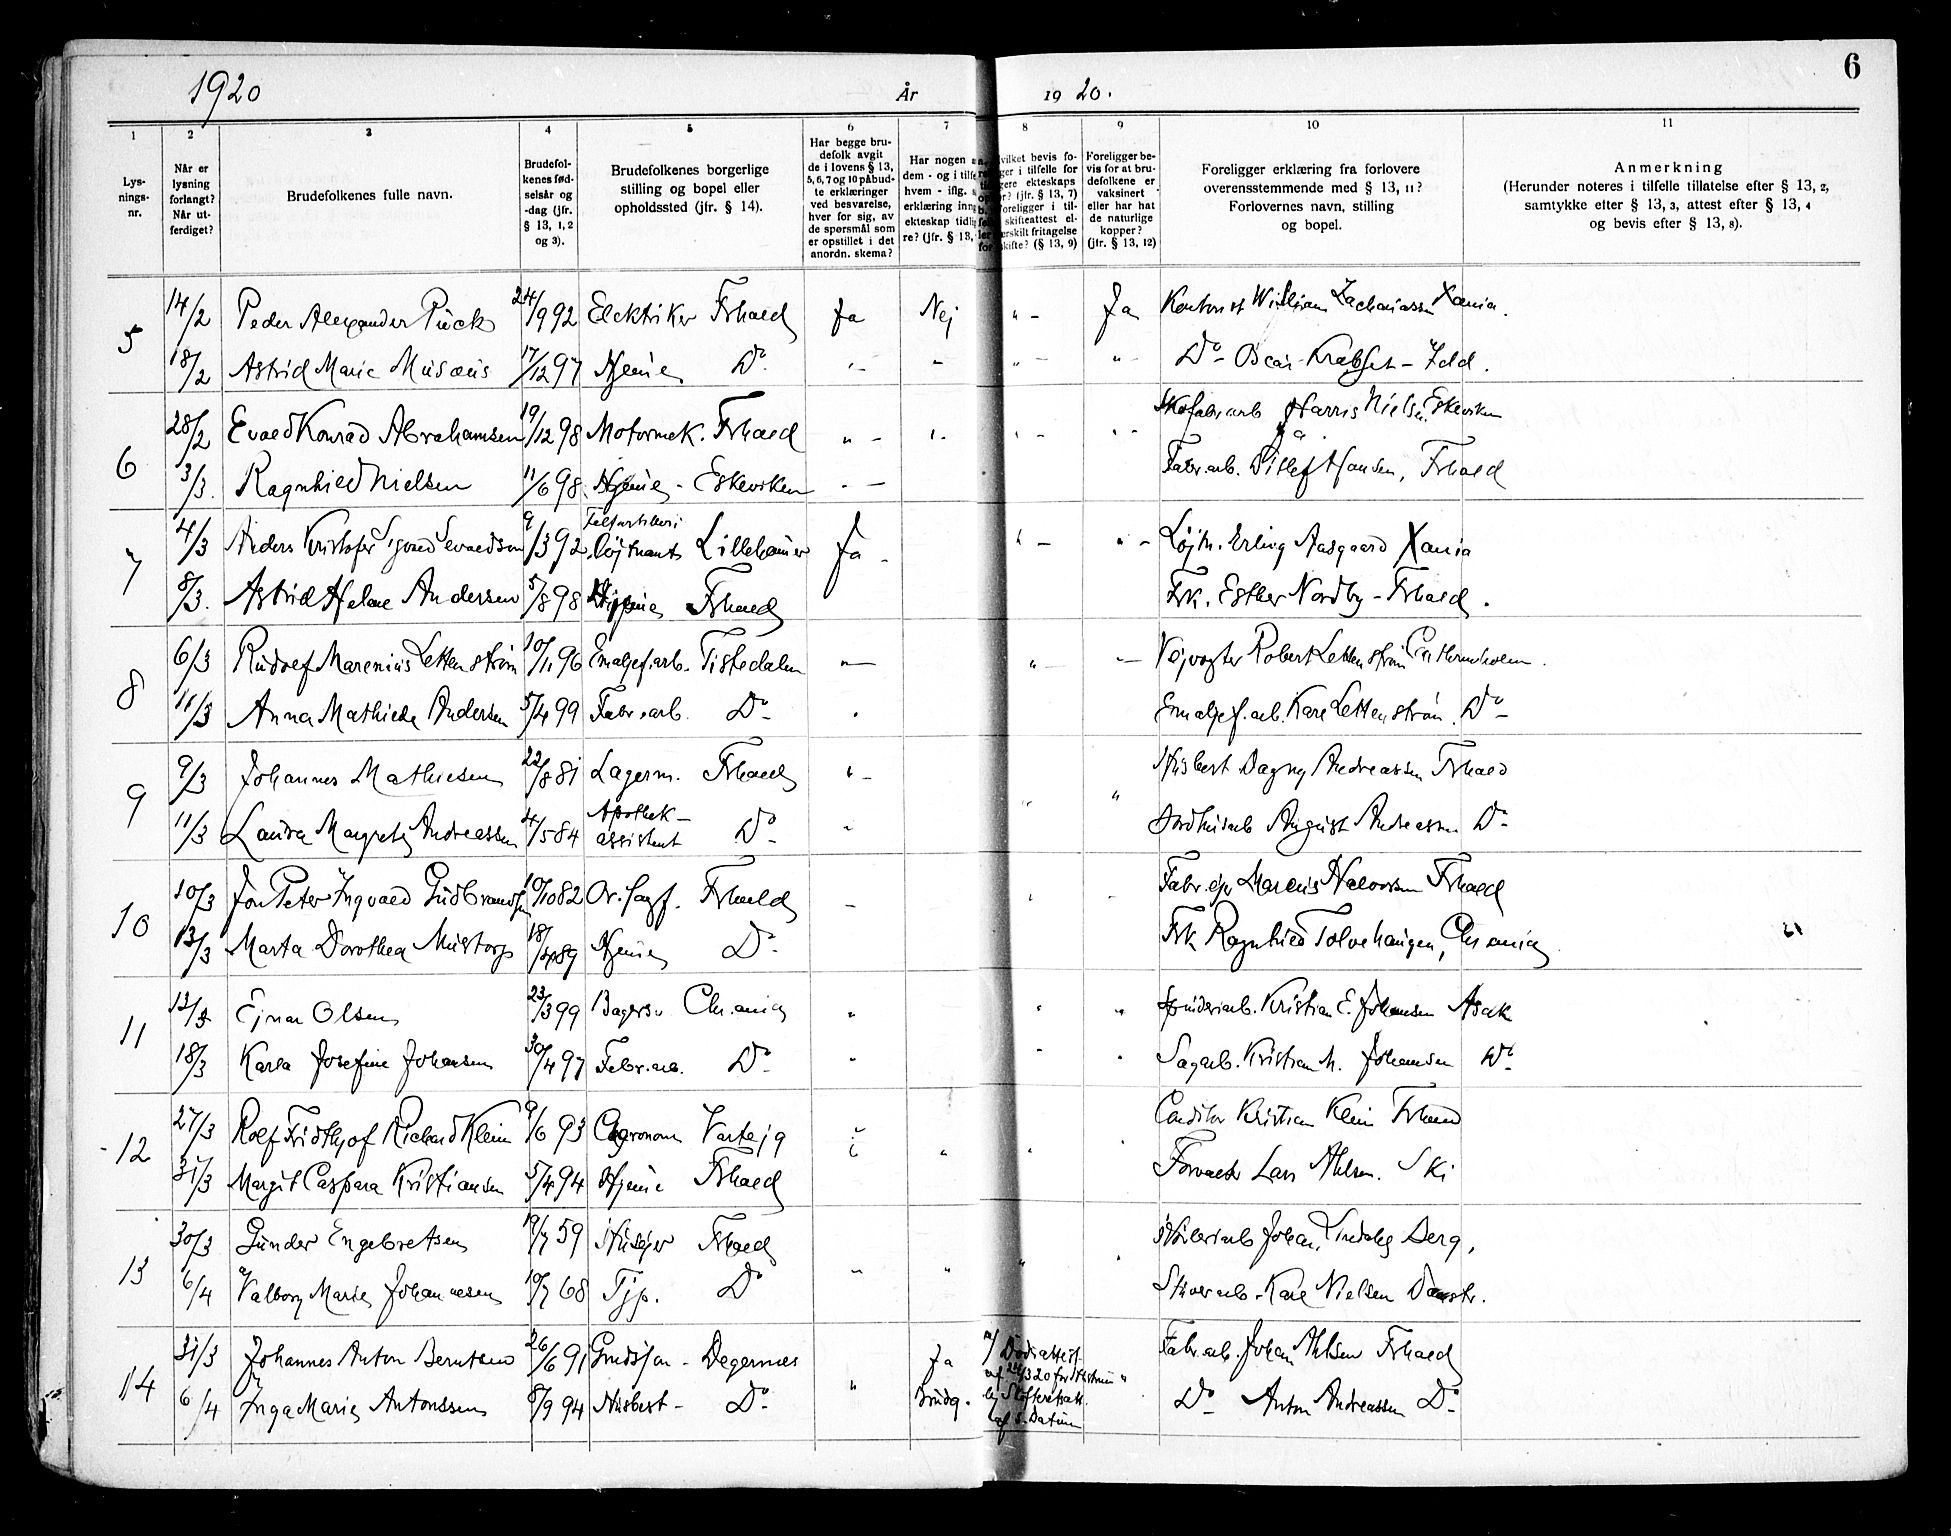 1920 År 1920. 6
1 2 3 4 5 6 7 8 9 10 11
Lys-
nings-
nr.
Når er
lysning
forlangt?
Når ut-
ferdiget?
Brudefolkenes fulle navn.
Brudefol-
kenes fød-
selsår og
-dag (jfr.
§ 13, 1, 2
og 3).
Brudefolkenes borgerlige
stilling og bopel eller
opholdssted (jfr. § 14).
Har begge bru-
defolk avgit
de i lovens § 13,
5, 6, 7 og 10 påbud-
te erklæringer
ved besvarelse,
hver for sig, av
de spørsmål som
er opstillet i det
anordn. skema?
Har nogen a
dem - og i tilfe
hvem - iflg. s
erklæring inng
ekteskap tidlig
re? (jfr. § 13,
vilket bevis fo-
ger i tilfelle for
gere ekteskaps
r? (jfr. § 13, 7)
oreligger i til-
skifteattest el-
erskilt fritagelse
skifte? (§ 13, 9)
Foreligger be-
vis for at bru-
defolkene er
vaksinert
eller har hat
de naturlige
kopper?
(jfr. § 13, 12)
Foreligger erklæring fra forlovere
overensstemmende med § 13, 11?
Forlovernes navn, stilling
og bopel.
Anmerkning
(Herunder noteres i tilfelle tillatelse efter § 13, 2,
samtykke efter § 13, 3, attest efter § 13, 4
og bevis efter § 13, 8).
5 14/2 Peder Alexander Pück 24/9 92 Elektriker Frhald Ja Nej " - Ja Kontorist William Zachariassen Xania.
18/2 Astrid Marie Musæus 17/12 97 Hjemme Do " - - " - " - Do - Oscar Idd.
6 28/2 Evald Konrad Abrahamsen 19/12 98 Motormek. Frhald " - Skofabrarb Harris Nielsen Eskeviken
3/3. Ragnhild Nielsen 11/6 98 Hjemme - Eskeviken " - Fabr.arb. Ditlef Hansen, Frhald
7 4/3 Anders Kristofer Sigvald Sevaldsen 9/3 92 Feltartilleri
Løjtnant Lillehamer Ja - " - " - Løjtn. Erling Aasgaard Xania
8/3. Astrid Helene Andersen 5/8 98 Hjemme Frhald Frk. Esther Nordby - Frhald.
8 6/3 Rudolf Marenius Lettenström 10/11 96 Emaljef.arb. Tistedalen " - " - " - Vejvogter Robert Lettenström
11/3 Anna Mathilde Andersen 5/4 99 Fabr.arb. Do - Emaljef.arb. Karl Lettenström. Do -
9 9/3 Johannes Mathiesen 22/8 81 Lagerm. Frhald " - " " Husbest Dagny Andreassen Frhald
11/3 Laura Margrethe Andreassen 4/5 84 Apothek-
assistent Do - " August Andreassen Do -
10 10/3 Jon Peter Ingvald Gudbrandsen 10/10 82 Frhald - Fabr.ejer Marcus Halvorsen Frhald
13/3 Marta Dorothea Mustorp 18/4 89 Hjemme Do - Frk Ragnhild Tolvehaugen, Chr.ania
11 13/3 Ejnar Olsen 23/3 99 Bagersv. Chr.ania " " " Spinderiarb. Kristian E. Johansen Asak
18/3 Karla Josefine Johansen 30/4 97 Fabr.arb. Do - " " " Sagarb. Kristian M. Johansen Do -
12 27/3 Rolf Fridtjof Richard Klein 9/6 93 Agronom Varteig " " " Conditor Kristian Klein Frhald
31/3 Margit Caspara Kristiansen 5/4 94 Hjemme Frhald Forvalter Lars Ahlsen. Ski
13 30/3 Gunder Engebretsen 19/7 59 Husejer Frhald " " " Johan Lindahl Berg,
6/4 Valborg Marie Johannesen 10/7 68 Tjp. Do Karl Nielsen
14 31/3 Johannes Anton Berntsen 26/6 91 Degernes " Ja a/ Dødsattest
af 24/3 20 for Hustruen " Fabr.arb. Johan Ahlsen Frhald
6/4 Inga Marie Antonssen 8/9 94 Husbest - Do - Brudg. b/ Skifteretsatt.
af s. Datum Do - Anton Andreassen Do -